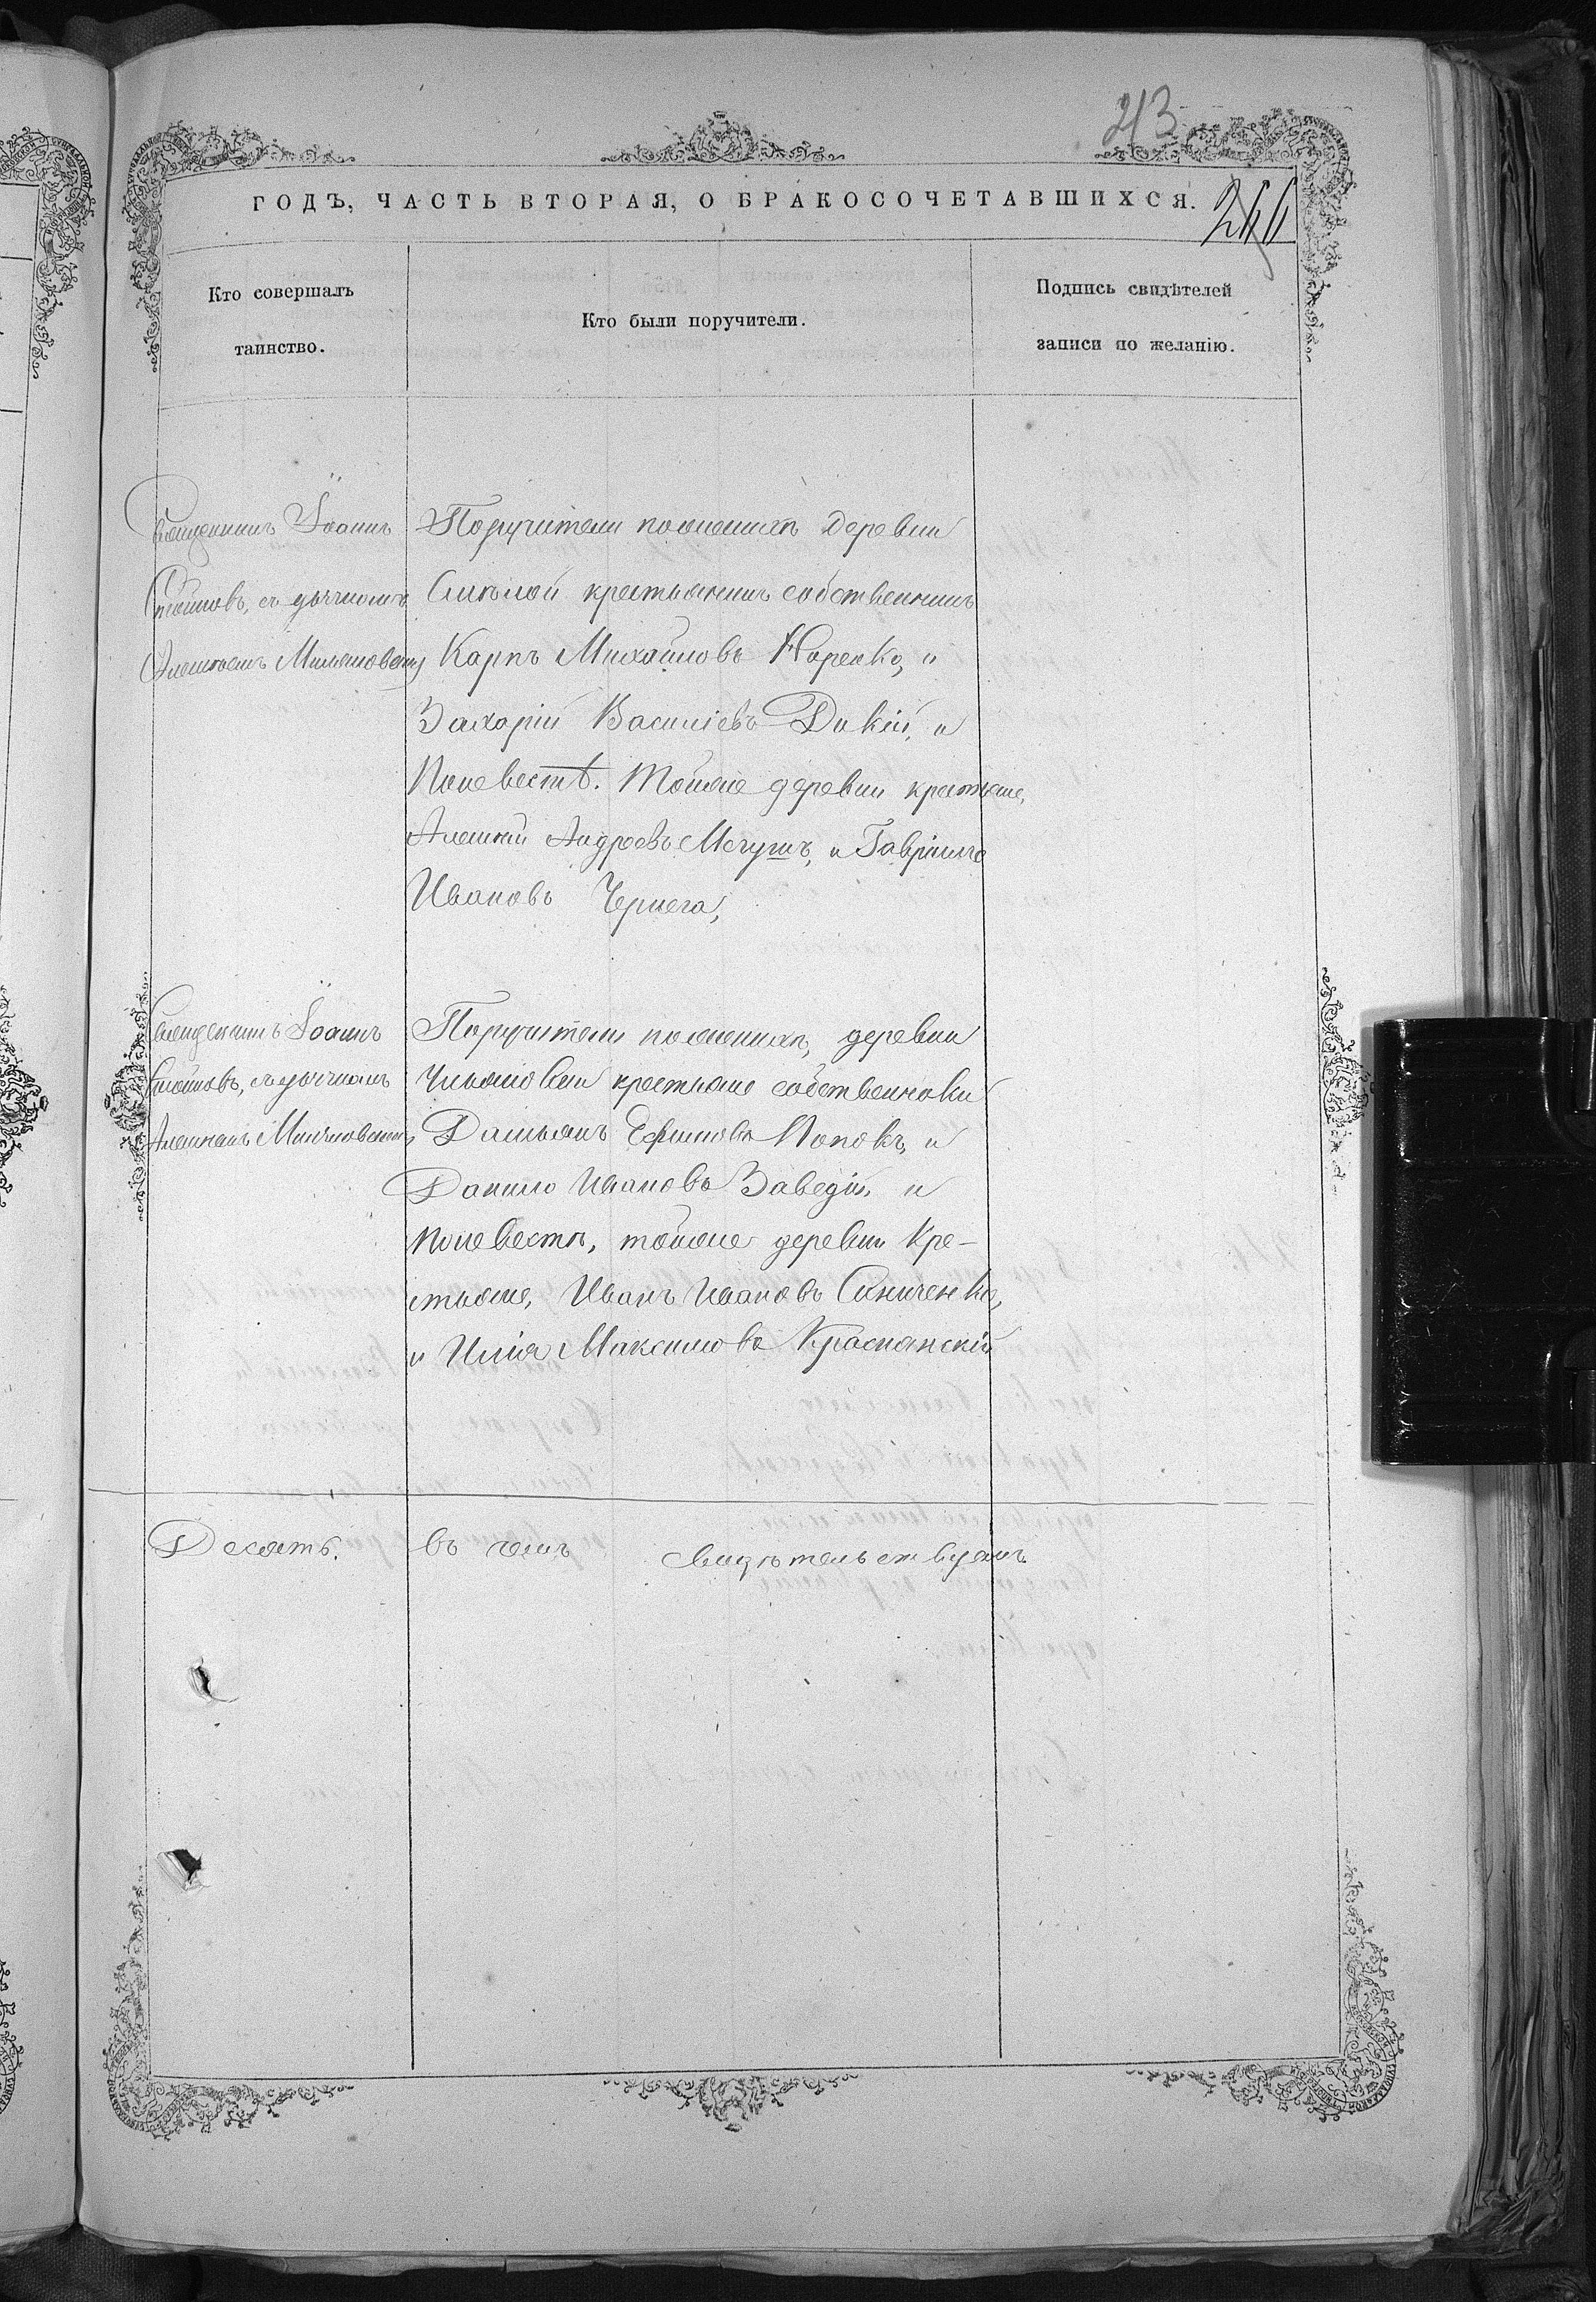 213
ГОДЪ, ЧАСТЬ ВТОРАЯ, О БРАКОСОЧЕТАВШИХСЯ.
Кто совершалъ
таинство.
Кто были поручители.
Подпись свидѣтелей
записи по желанію.
Священникъ Іоаннъ
Стойновъ, съ дьячкомъ
Алексѣемъ
Поручители по женихѣ деревни
крестьянинъ собственникъ
Карпъ Михайловъ и
Захарій Василіевъ Дикій, и
По невестѣ. Тойже деревни крестьяне,
Алексѣй Андреевъ и Гавріилъ
Ивановъ Чернега,
Священникъ Іоаннъ
Стойновъ, съ дьячкомъ
Алексѣемъ
Поручители по женихѣ, деревни
Ульяновки крестьяне собственники
Дамьянъ Ефимовъ Попокъ, и
Данило Ивановъ Заведій, и
по невестѣ, тойже деревни Кре-
стьяне, Иванъ Ивановъ
и Илія Максимовъ Краснянскій
Десять. въ чемъ свидѣтельствуемъ